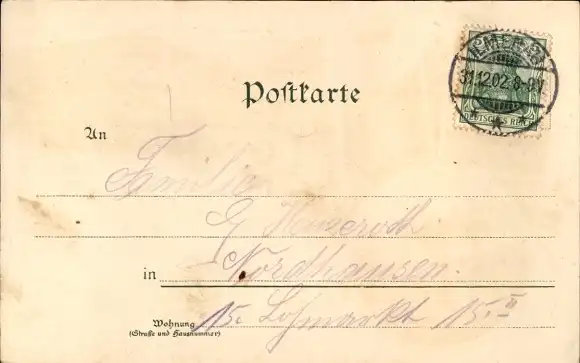 31.12.02. 8-9 V.
DEUTSCHES REICH
Postkarte
An
Familie
Nordhausen.
in
Wohnung
(Straße und Hausnummer)
15. Lohmarkt 15. II